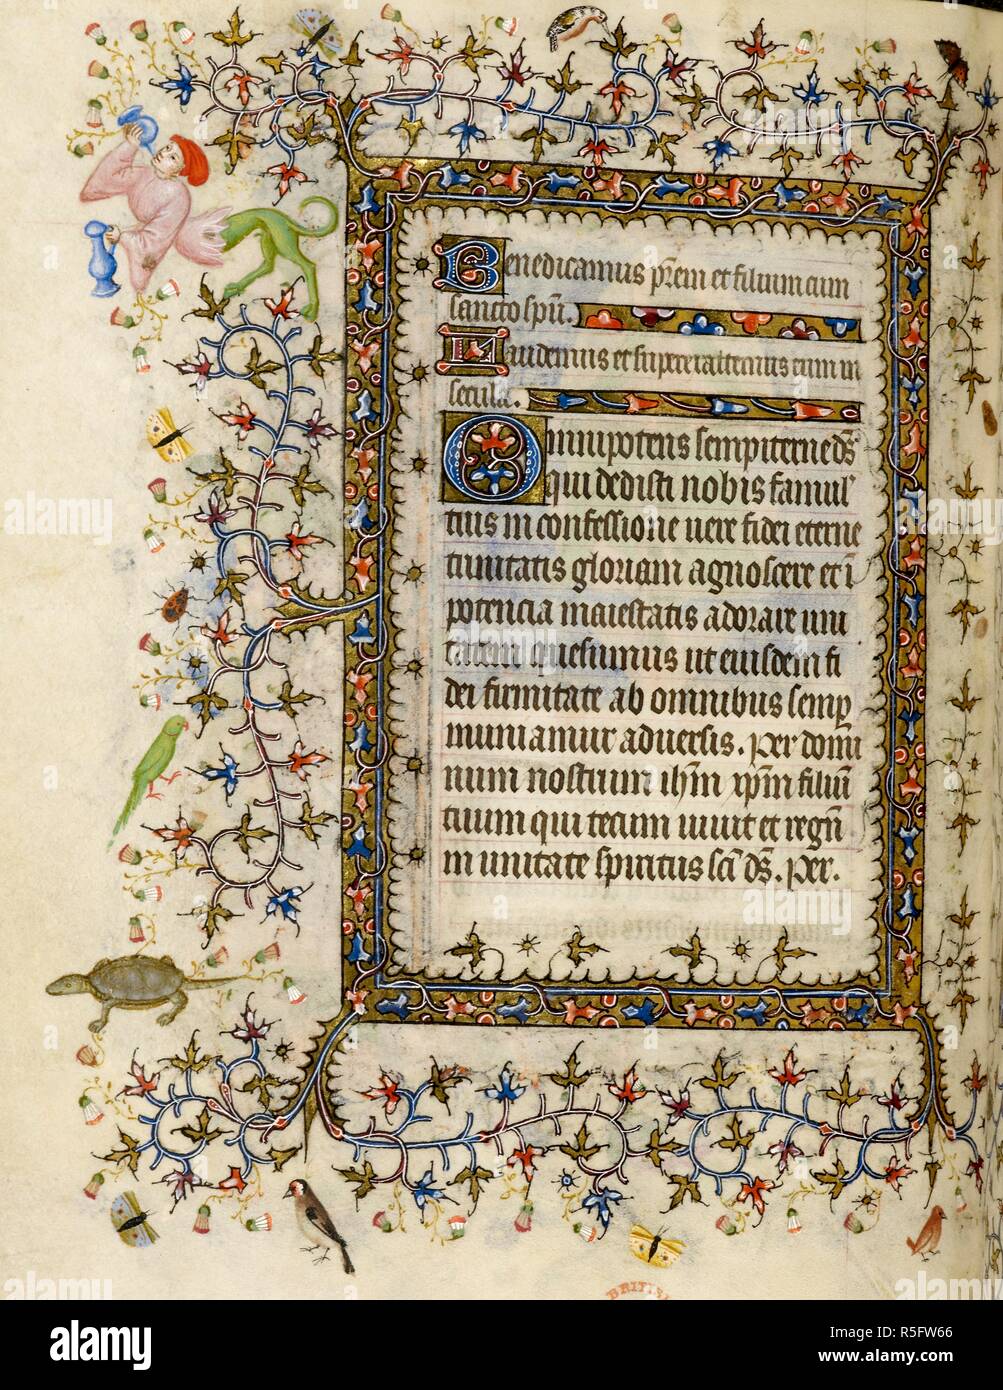 Benedicamus prem et filium cum
sancto spu.
Laudemus et superexaltemus eum in
secula.
Omnipotens sempiterne ds
qui dedisti nobis famul
tuis in confessione vere fidei eterne
trinitatis gloriam agnoscere et i
potencia maiestatis adorare uni
tatem quesumus ut eiusdem fi
dei firmitate ab omnibus semp
muniamur adversis. Per domi
num nostrum ihm xpm filiu
tuum qui tecum vivit et regn
in unitate spiritus sci ds. Per.
BRITIS
alamy
Image ID: R5FW66
www.alamy.com